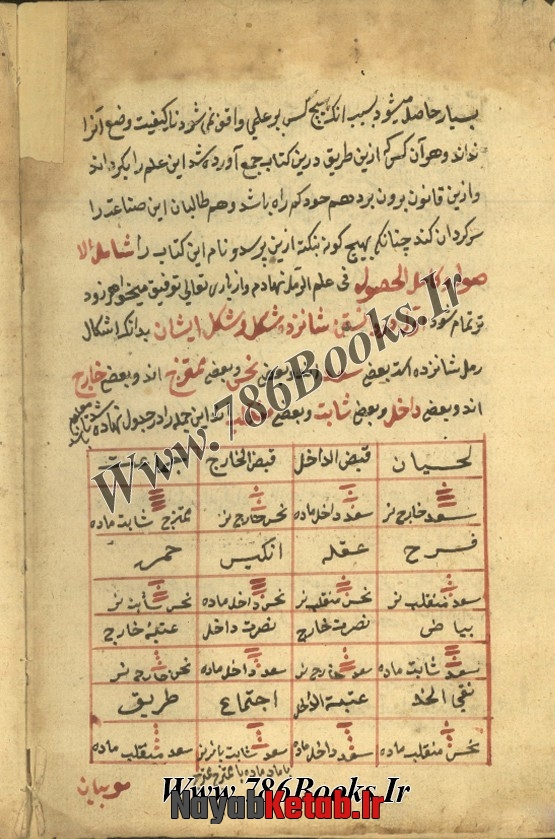 بسیار حاصل میشود بسبب انک هیچ کس بر علمی واقف نمیشود تا کیفیت وضع آنرا
نداند و هر آن کس کم ازین طریق درین کتاب جمع آورده شد این علم را بکرداند
و ازین قانون برون برد هم خود کم راه باشد و هم طالبان این صناعت را
سرکردان کند چنانکه بهیچ کونه بنکته ازین برسد و نام این کتاب را شامل الا
صول کامل الحصول فی علم الرمل نهادم و از باری تعالی توفیق میخواهم زود
تر تمام شود شانزده شکل و شکل ایشان بدانک اشکال
رمل شانزده است بعضی سعد و بعضی نحس و بعضی ممتزج اند و بعضی خارج
اند و بعضی داخل و بعضی ثابت و بعضی منقلب این جمله را در جدول نهاده شد
لحیان قبض الداخل قبض الخارج جماعت
سعد خارج نر سعد داخل ماده نحس خارج نر ممتزج ثابت ماده
فرح عقله انکیس حمره
سعد منقلب نر نحس منقلب نر نحس داخل ماده نحس ثابت نر
بیاض نصرت خارج نصرت داخل عتبة خارج
سعد ثابت ماده سعد خارج نر سعد داخل ماده نحس خارج نر
نقی الخد عتبة الداخل اجتماع طریق
نحس منقلب ماده سعد داخل ماده سعد ثابت با نر نر سعد منقلب ماده
با ماده ماده با ممتزج ممتزج
Www.786Books.Ir
Www.786Books.Ir
NayabKetab.ir